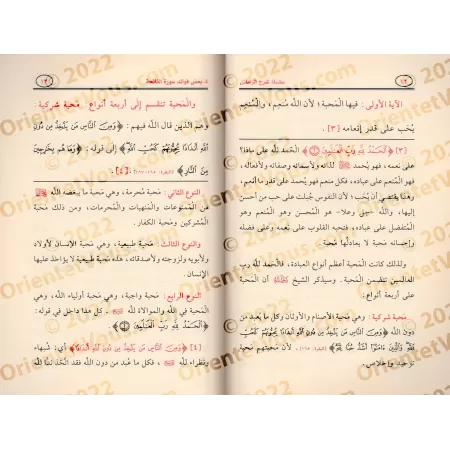 ١٢
سلسلة شرح الرسائل
الآية الأولى: فيها المحبة؛ لأن الله مُنعِم، والْمُنْعِم
يُحَب على قدر إنعامه [٣].
[٣] ﴿الْحَمْدُ لِلَّهِ رَبِّ الْعَالَمِينَ﴾ الحمد لله على ماذا؟
على نعمه، فهو يُحمد ﷺ لذاته ولأسمائه وصفاته ولأفعاله،
فهو المنعم على عباده، فكل منعم فهو يُحمد على قدر إنعامه،
وهذا يقتضي أن يُحَب؛ لأن النفوس جُبلت على حب من أحسن
إليها، والله - جل وعلا - هو المحسن وهو المنعم وهو
المتفضل على عباده، فتحبه القلوب على نعمه وعلى فضله
وإحسانه محبة لا يعادلها محبة.
ولذلك كانت المحبة أعظم أنواع العبادة، فالحمد لله رب
العالمين تتضمن المحبة. وسيذكر الشيخ أن المحبة
على أربعة أنواع:
محبة شركية: وهي محبة الأصنام والأوثان وكل ما يُعبد من
دون الله ﴿وَمِنَ النَّاسِ مَن يَتَّخِذُ مِن دُونِ اللَّهِ أَندَادًا يُحِبُّونَهُمْ كَحُبِّ
اللَّهِ وَالَّذِينَ آمَنُوا أَشَدُّ حُبًّا لِّلَّهِ﴾ [البقرة: ١٦٥]. لأن محبتهم محبة
توحيد وإخلاص.
٤- بعض فوائد سورة الفاتحة
١٣
والمحبة تنقسم إلى أربعة أنواع: محبة شركية:
وهم الذين قال الله فيهم: ﴿وَمِنَ النَّاسِ مَن يَتَّخِذُ مِن دُونِ
اللَّهِ أَندَادًا يُحِبُّونَهُمْ كَحُبِّ اللَّهِ﴾ إلى قوله: ﴿وَمَا هُم بِخَارِجِينَ
مِنَ النَّارِ﴾ [البقرة: ١٦٥-١٦٧] [٤].
النوع الثاني: محبة محرمة، وهي محبة ما يبغضه الله
من الممنوعات والمنهيات والمحرمات، ومن ذلك محبة
المشركين ومحبة الكفار.
النوع الثالث: محبة طبيعية، وهي محبة الإنسان لأولاده
ولأبويه ولزوجته ولأصدقائه، هذه محبة طبيعية لا يؤاخذ عليها
الإنسان.
النوع الرابع: محبة واجبة، وهي محبة أولياء الله، وهي
المحبة في الله والموالاة لله. كل هذا داخل في قوله:
﴿الْحَمْدُ لِلَّهِ رَبِّ الْعَالَمِينَ﴾
[٤] ﴿وَمِنَ النَّاسِ مَن يَتَّخِذُ مِن دُونِ اللَّهِ أَندَادًا﴾ أي: شبهاء
ونظراء لله، فكل ما عُبد من دون الله فقد اتُّخذ ندًّا لله
© OrientetVous.com 2022